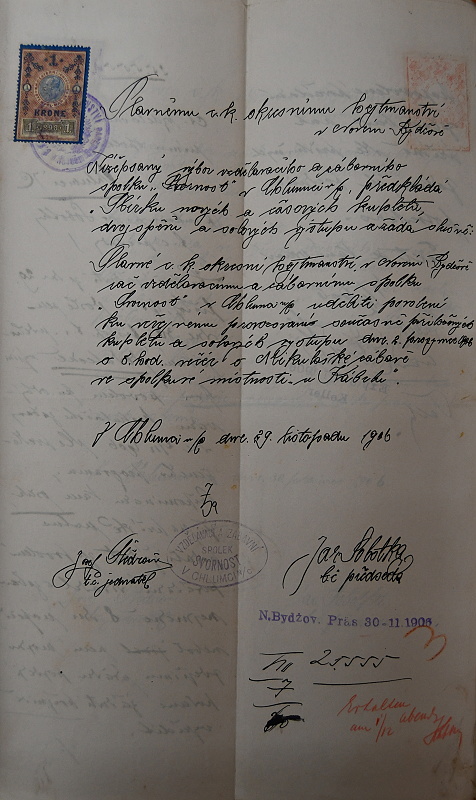 1
KRONE
1
Slavnému c. k. okresnímu hejtmanství
v Novém Bydžově
Nížepsaný výbor vzdělavacího a zábavního
spolku „Svornost" v Chlumci n/p. předkládá
„Sbírku nových a časových kupletů,
dvojspěvů a solových výstupů a žádá slušně:
Slavné c. k. okresní hejtmanství v Novém Bydžově
rač vzdělavacímu a zábavnímu spolku
„Svornost" v Chlumci n/p uděliti povolení
ku veřejnému provozování současně přiložených
kupletů a solových výstupů dne 2. prosince 1906
o 8. hod. večer o Mikulášské zábavě
ve spolkové místnosti u
V Chlumci n/p dne 29. listopadu 1906
Za
VZDĚLAVACÍ A ZÁBAVNÍ
SPOLEK
SVORNOST
V CHLUMCI N/C
Josef
t. č. jednatel
Jar. Sobotka
t. č. předseda
N. Bydžov. Präs 30-11.1906
No 25555
7
Erhalten
am 1/12 abends